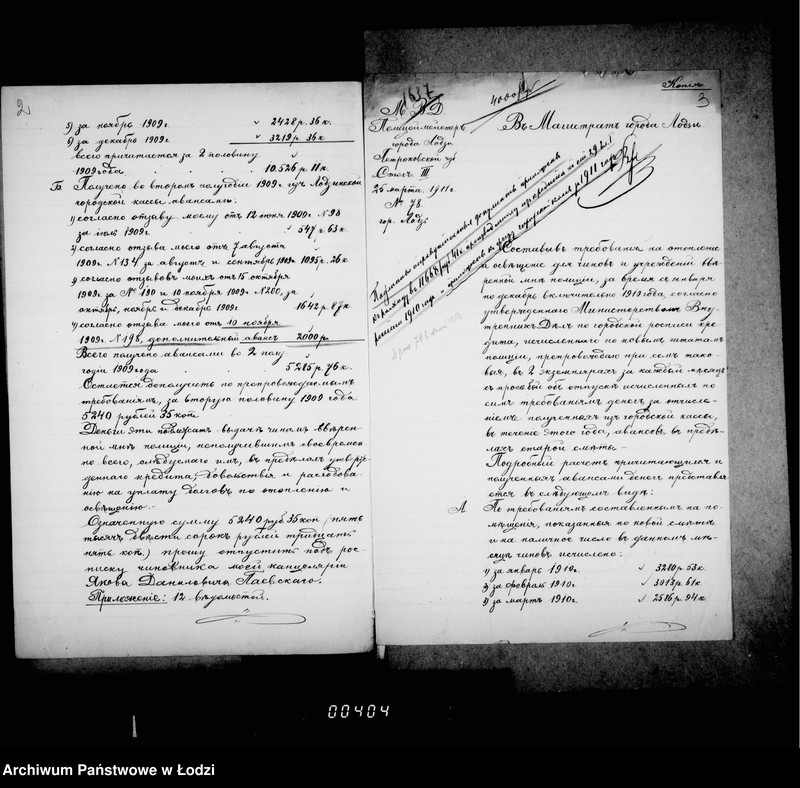 2
5) за ноябрь 1909 г. 2428 р. 36 к.
6) за декабрь 1909 г. 3219 р. 36 к.
всего причитается за 2 половину
1909 года . . . 10.526 р. 11 к.
Б Получено во второмъ полугодіи 1909 г. изъ Лодзинской
городской кассы авансами:
1) согласно отзыву моему отъ 12 іюня 1909 г. № 98
за іюль 1909 г. 547 р. 63 к.
2) согласно отзыва моего отъ 7 августа
1909 г. № 134 за августъ и сентябрь 1909 г. 1095 р. 26 к.
3) согласно отзывовъ моихъ отъ 15 октября
1909 г. за № 190 и 10 ноября 1909 г. № 200, за
октябрь, ноябрь и декабрь 1909 г. 1642 р. 87 к.
4) согласно отзыва моего отъ 10 ноября
1909 г. № 198, дополнительный авансъ 2000 р.
Всего получено авансами во 2 полу
годіи 1909 года . 5285 р. 76 к.
Остается дополучить по препровождаемымъ
требованіямъ, за вторую половину 1909 года
5240 рублей 35 коп.
Деньги эти подлежатъ выдачѣ чинамъ ввѣрен-
ной мнѣ полиціи, неполучившимъ своевремен-
но всего, слѣдуемаго имъ, въ предѣлахъ утверж-
деннаго кредита, довольствія и расходова-
нію на уплату долговъ по отопленію и
освѣщенію.-
Означенную сумму 5240 руб. 35 коп. (пять
тысячъ двѣсти сорокъ рублей тридцать
пять коп.) прошу отпустить подъ рос-
писку чиновника моей канцеляріи
Якова Даниловича Гаевскаго.
Приложеніе: 12 вѣдомостей.
Копія
3
1637
4000 р
М В Д
Полиціймейстеръ
города Лодзи
Петроковской губ.
Столъ III
25 марта 1911 г.
№ 78.
гор. Лодзь
Въ Магистратъ города Лодзи
1910 года
1911 года
Составивъ требованія на отопленіе
и освѣщеніе для чиновъ и учрежденій ввѣ-
ренной мнѣ полиціи, за время съ января
по декабрь включительно 1910 года, согласно
утвержденной Министерствомъ Вну-
треннихъ Дѣлъ по городской росписи кре-
дита, исчисленнаго по новымъ штатамъ
полиціи, препровождаю при семъ тако-
выя, въ 2 экземплярахъ за каждый мѣсяцъ
съ просьбой объ отпускѣ исчисленныхъ по
симъ требованіямъ денегъ за отчисле-
ніемъ полученныхъ изъ городской кассы,
въ теченіе этого года, авансовъ въ предѣ-
лахъ старой смѣты.-
Подробный расчетъ причитающихся и
полученныхъ авансами денегъ представля-
ется въ слѣдующемъ видѣ:
А По требованіямъ составленнымъ на по-
мѣщенія, показанныя по новой смѣтѣ
и на наличное число въ данномъ мѣ-
сяцѣ чиновъ исчислено:
1) за январь 1910 г. 3280 р. 53 к.
2) за февраль 1910 г. 3013 р. 61 к.
3) за мартъ 1910 г. 2586 р. 94 к.
00404
Archiwum Państwowe w Łodzi